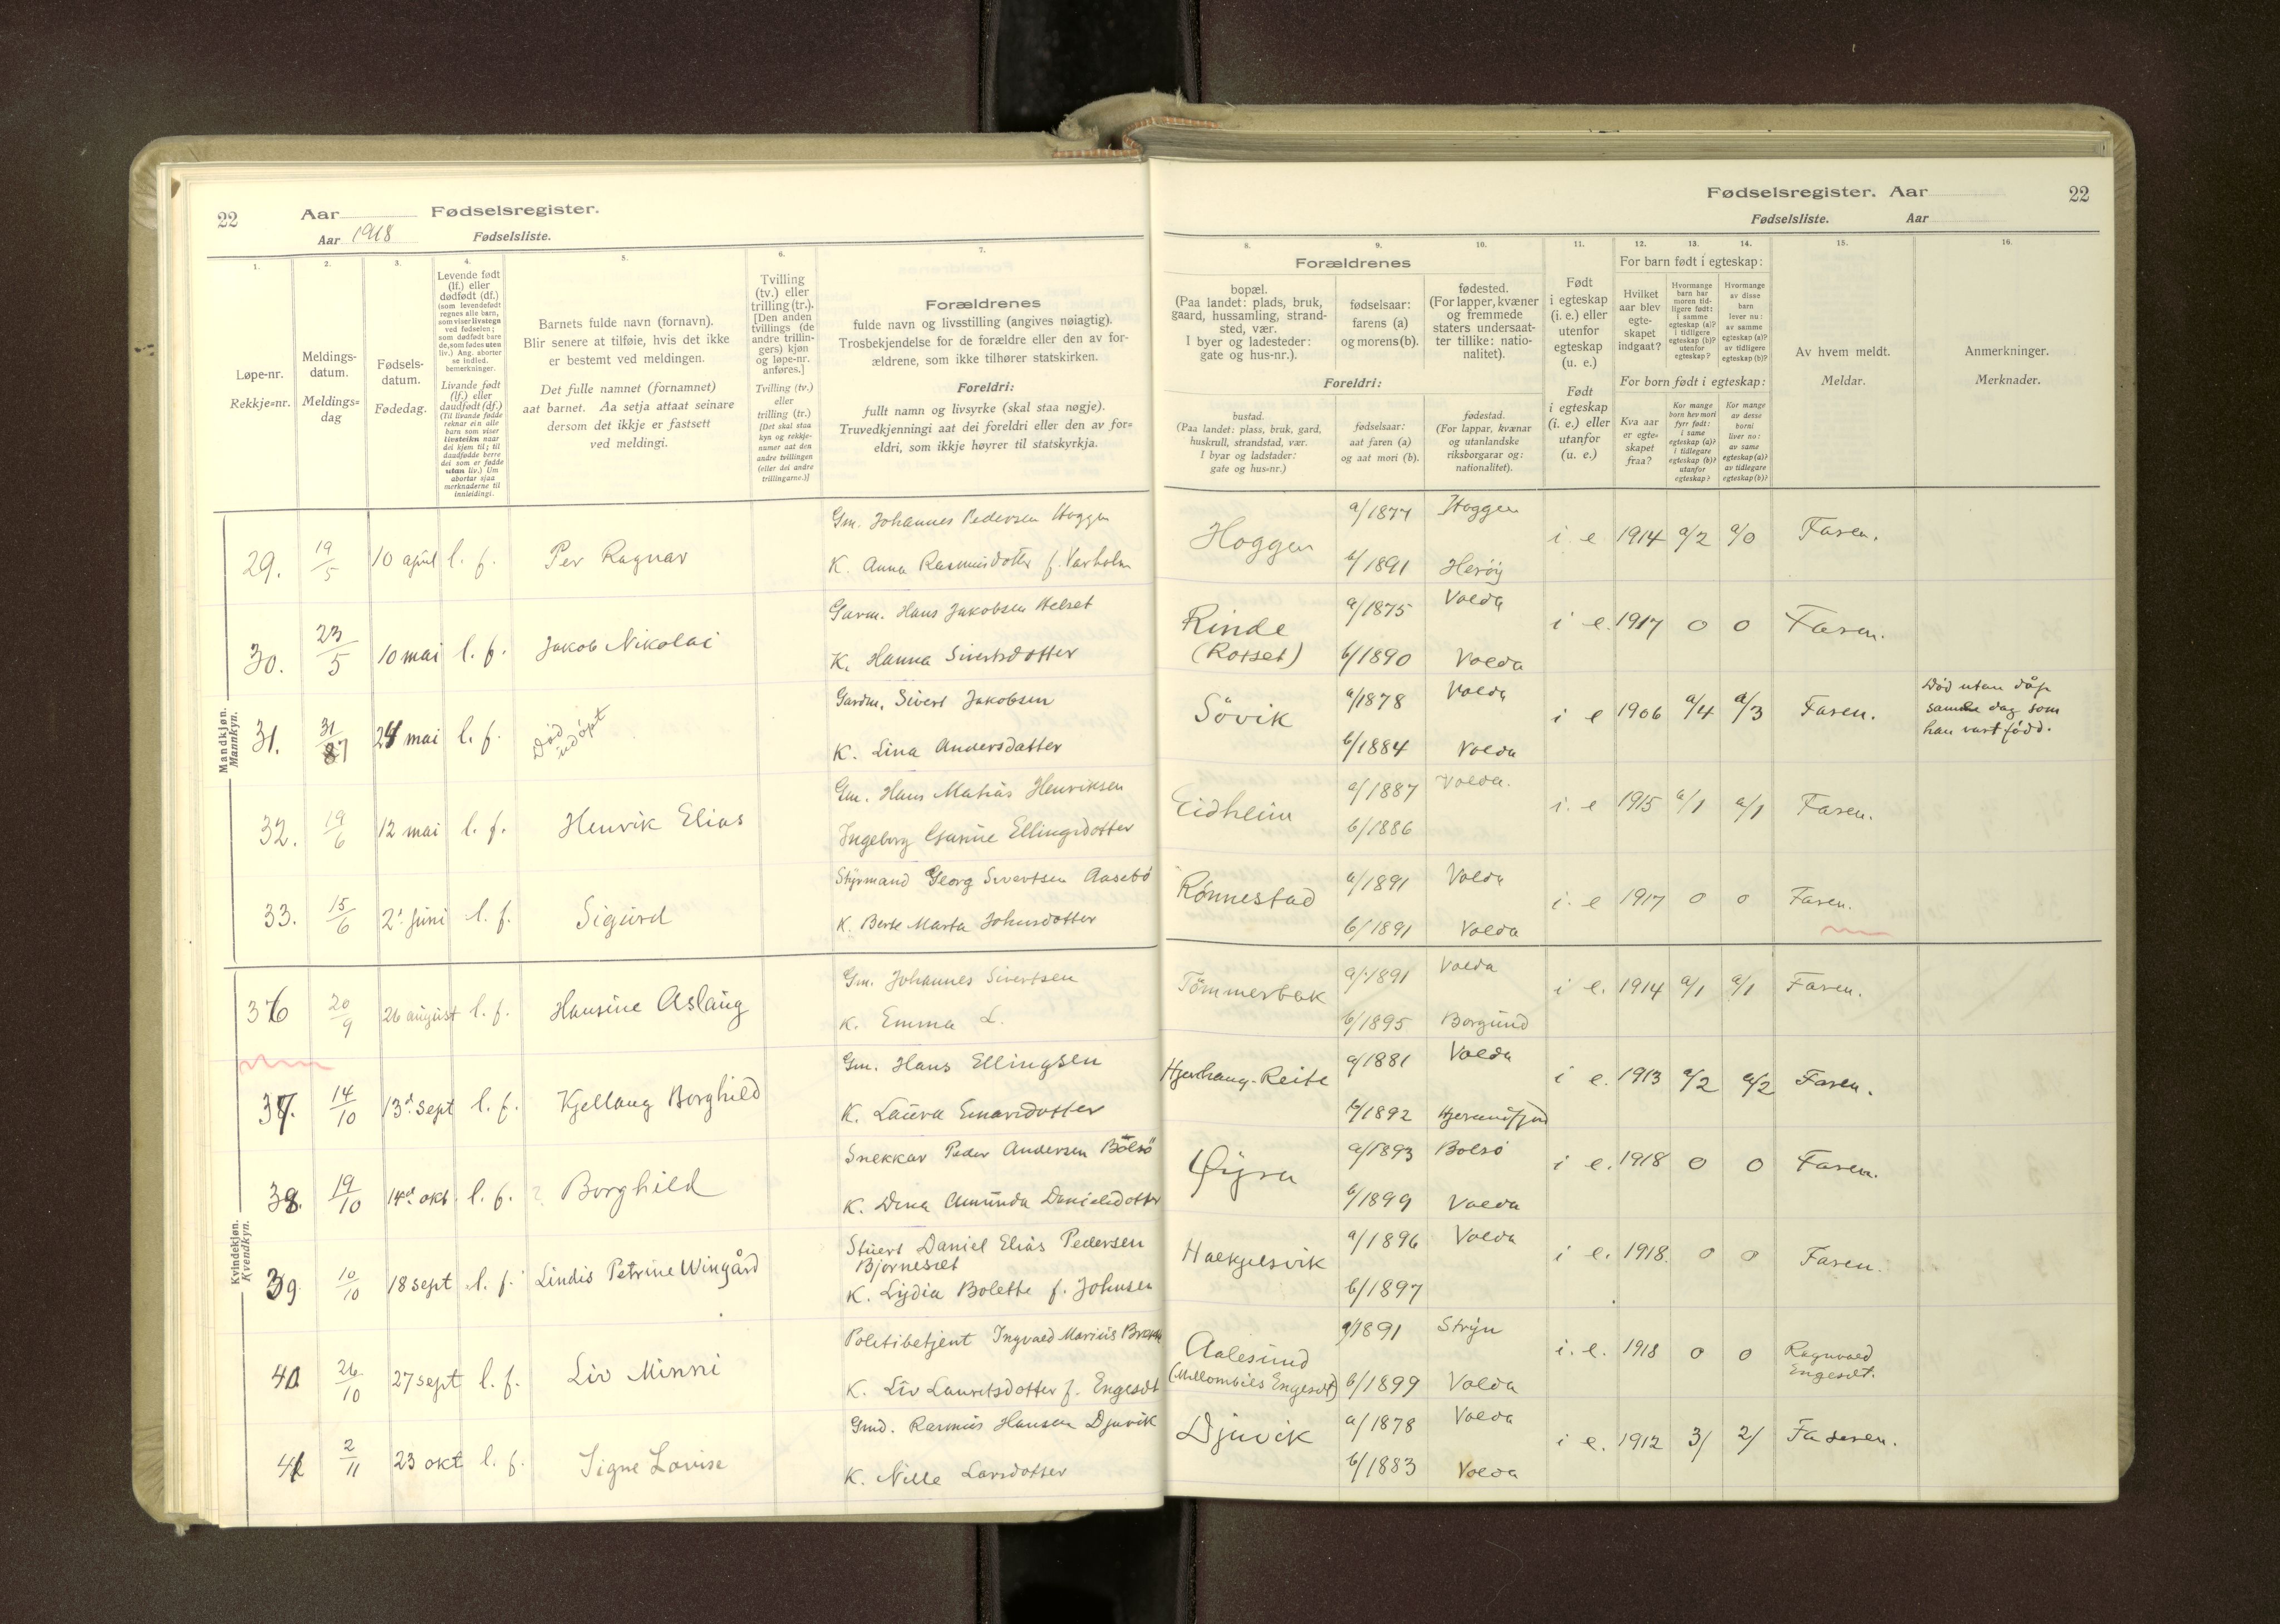 22
Aar
Fødselsregister.
Aar 1918
Fødselsliste.
Fødselsregister. Aar
22
Fødselsliste.
Aar
1. 2. 3. 4. 5. 6. 7.
Løpe-nr.
Rekkje=nr.
Meldings-
datum.
Meldings=
dag
Fødsels-
datum.
Fødedag.
Levende født
(lf.) eller
dødfødt (df.)
(som levendefødt
regnes alle barn,
som viser livstegn
ved fødselen;
som dødfødt bare
de, som fødes uten
liv.) Ang. aborter
se indled.
bemerkninger.
Livande født
(lf.) eller
daudfødt (df.)
(Til livande fødde
reknar ein alle
born som viser
livsteikn naar
dei kjem til; til
daudfødde berre
dei som er fødde
utan liv.) Um
abortar sjaa
merknaderne til
innleidingi.
Barnets fulde navn (fornavn).
Blir senere at tilføie, hvis det ikke
er bestemt ved meldingen.
Det fulle namnet (fornamnet)
aat barnet. Aa setja attaat seinare
dersom det ikkje er fastsett
ved meldingi.
Tvilling
(tv.) eller
trilling (tr.).
[Den anden
tvillings (de
andre trillin-
gers) kjøn
og løpe-nr.
anføres.]
Tvilling (tv.)
eller
trilling (tr.)
[Det skal staa
kyn og rekkje-
numer aat den
andre tvillingen
(eller dei andre
trillingarne.)]
Forældrenes
fulde navn og livsstilling (angives nøiagtig).
Trosbekjendelse for de forældre eller den av for-
ældrene, som ikke tilhører statskirken.
Foreldri:
fullt namn og livsyrke (skal staa nøgje).
Truvedkjenningi aat dei foreldri eller den av for=
eldri, som ikkje høyrer til statskyrkja.
8. 9. 10. 11. 12. 13. 14. 15. 16.
Forældrenes
bopæl.
(Paa landet: plads, bruk,
gaard, hussamling, strand-
sted, vær.
I byer og ladesteder:
gate og hus-nr.).
fødselsaar:
farens (a)
og morens (b).
fødested.
(For lapper, kvæner
og fremmede
staters undersaat-
ter tillike: natio-
nalitet).
Foreldri:
bustad.
(Paa landet: plass, bruk, gard,
huskrull, strandstad, vær.
I byar og ladstader:
gate og hus-nr.)
fødselsaar:
aat faren (a)
og aat mori (b).
fødestad.
(For lappar, kvænar
og utanlandske
riksborgarar og:
nationalitet).
Født
i egteskap
(i. e.) eller
utenfor
egteskap
(u. e.)
Født
i egteskap
(i. e.) eller
utanfor
(u. e.)
For barn født i egteskap:
Hvilket
aar blev
egte-
skapet
indgaat?
Hvormange
barn har
moren tid-
ligere født:
i samme
egteskap (a)?
i tidligere
egteskap (b)?
utenfor
egteskap?
Hvormange
av disse
barn
lever nu:
av samme
egteskap (a)?
av tidligere
egteskap (b)?
For born født i egteskap:
Kva aar
er egte-
skapet
fraa?
Kor mange
born hev mori
fyrr født:
i same
egteskap (a)?
i tidlegare
egteskap (b)?
utanfor
egteskap?
Kor mange
av desse
borni
liver no:
av same
egteskap (a)?
av tidlegare
egteskap (b)?
Av hvem meldt.
Meldar.
Anmerkninger.
Merknader.
Mandkjøn.
Mannkyn.
29. 19/5 10 april l. f. Per Ragnar Gm. Johannes Pedersen Hoggen Hoggen a/1877 Hoggen i e 1914 a/2 a/0 Faren.
K. Anna Rasmusdotter f. Varholm b/1891 Herøy
30. 23/5 10 mai l. f. Jakob Nikolai Garm. Hans Jakobsen Helset Rinde a/1875 Volda i e. 1917 0 0 Faren.
K. Hanna Sivertsdotter (Rotset) b/1890 Volda
31. 31/7 24 mai l. f. Död udöpt Gardm. Sivert Jakobsen Sövik a/1878 Volda i e 1906 a/4 a/3 Faren. Död utan dåp
samme dag som
han vart född.
K. Lina Andersdatter b/1884 Volda
32. 19/6 12 mai l. f. Henrik Elias Gm. Hans Matias Henriksen Eidheim a/1887 Volda. i. e 1915 a/1 a/1 Faren.
Ingeborg Gurine Ellingsdotter b/1886
33. 15/6 2. juni l. f. Sigurd Styrmand Georg Sivertsen Aasebö Rönnestad a/1891 Volda i. e 1917 0 0 Faren.
K. Berte Marta Johnsdotter b/1891 Volda
Kvindekjøn.
Kvendkyn.
36 20/9 26 august l. f. Hansine Aslaug Gm. Johannes Sivertsen Tömmerbak a/1891 Volda i e. 1914 a/1 a/1 Faren.
K. Emma L. b/1895 Borgund
37. 14/10 13d. sept l. f. Kjellaug Borghild Gm. Hans Ellingsen Hjerhaug-Reite a/1881 Volda i e. 1913 a/2 a/2 Faren.
K. Laura Einarsdotter b/1892 Hjørundfjord
38. 19/10 14d. okt. l. f. ? Borghild Snekkar Peder Andersen Bölsö Öyra a/1893 Bolsö i e. 1918 0 0 Faren.
K. Dina Amunda Danielsdotter b/1899 Volda
39 10/10 18 sept l. f. Lindis Petrine Wingård Stuert Daniel Elias Pedersen
Bjorneset Halkjelsvik a/1896 Volda i e. 1918. 0 0 Faren.
K. Lydia Bolette f. Johnsen b/1897
40 26/10 27 sept l. f. Liv Minni Politibetjent Ingvald Marius Aalesund a/1891 Stryn i. e. 1918 0 0 Ragnvald
Engeset.
K. Liv Lauritsdotter f. Engeset (Millombils Engeset) b/1899 Volda
41 2/11 23 okt l. f. Signe Lovise Gmd. Rasmus Hansen Djuvik Djuvik a/1878 Volda i e. 1912 3/ 2/ Faderen.
K. Nille Larsdotter b/1883 Volda